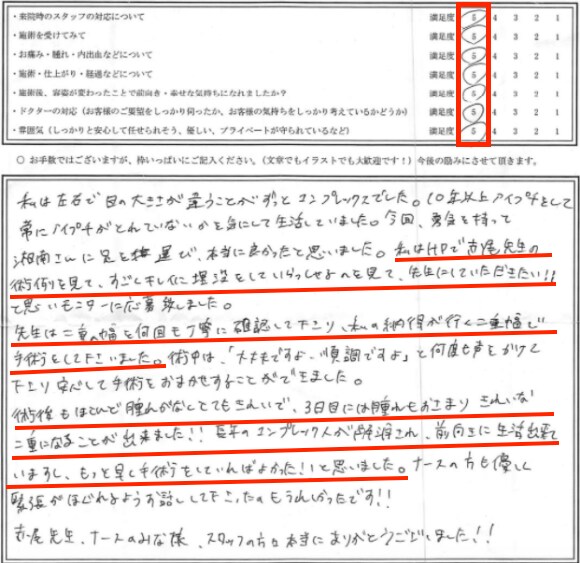 ・来院時のスタッフの対応について 満足度 5 4 3 2 1
・施術を受けてみて 満足度 5 4 3 2 1
・お痛み・腫れ・内出血などについて 満足度 5 4 3 2 1
・施術・仕上がり・経過などについて 満足度 5 4 3 2 1
・施術後、容姿が変わったことで前向き・幸せな気持ちになれましたか? 満足度 5 4 3 2 1
・ドクターの対応(お客様のご要望をしっかり伺ったか、お客様の気持ちをしっかり考えているかどうか) 満足度 5 4 3 2 1
・雰囲気(しっかりと安心して任せられそう、優しい、プライベートが守られているなど) 満足度 5 4 3 2 1
○ お手数ではございますが、枠いっぱいにご記入ください。(文章でもイラストでも大歓迎です!)今後の励みにさせて頂きます。
私は左右で目の大きさが違うことがずっとコンプレックスでした。10年以上アイプチをして
常にアイプチがとれていないかを気にして生活していました。今回、勇気を持って
湘南さんに足を運び、本当に良かったと思いました。私はHPで 尾先生の
術例を見て、すごくキレイに埋没をしていらっしゃるのを見て、先生にしていただきたい!!
と思いモニターに応募致しました。
先生は二重の幅を何回も丁寧に確認して下さり、私の納得が行く二重幅で
手術をして下さいました。術中は、「大丈夫ですよ、順調ですよ」と何度も声をかけて
下さり安心して手術をおまかせすることができました。
術後もほとんど腫れがなくとてもきれいで、3日目には腫れもおさまり きれいな
二重になることが出来ました!! 長年のコンプレックスが解消され、前向きに生活出来て
いますし、もっと早く手術をしていればよかった!!と思いました。ナースの方も優しく
緊張がほぐれるようお話しして下さったのもうれしかったです!!
尾先生、ナースのみな様、スタッフの方々本当にありがとうございました!!